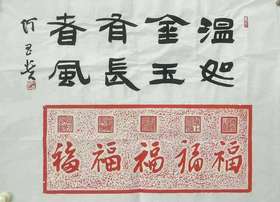 溫如
金玉
有長
春風
福福福福福